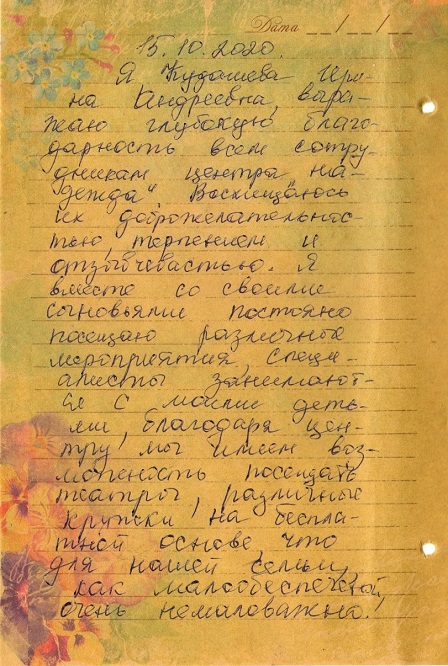 Дата __/__/__
15.10.2020.
Я Кудашева Ири-
на Андреевна, выра-
жаю глубокую благо-
дарность всем сотру-
дникам центра „На-
дежда“. Восхищаюсь
их доброжелательнос-
тью, терпением и
отзывчевастью. Я
вместе со своими
сыновьями постояно
посещаю различные
мероприятия, специ-
алисты занимают-
ся с моими деть-
ми, благодаря цен-
тру мы имеем воз-
можность посещать
театры, различные
кружки, на беспла-
тной основе что
для нашей семьи,
как малообеспеченой,
очень немаловажно.